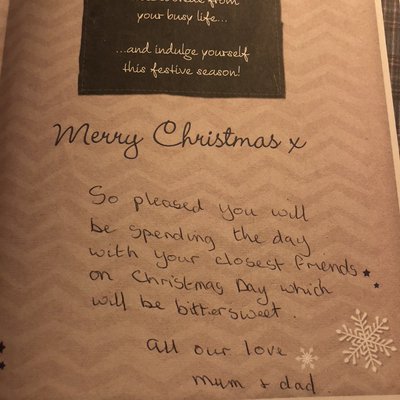 from
your busy life...
...and indulge yourself
this festive season!
Merry Christmas x
So pleased you will
be spending the day
with your closest friends
on Christmas Day which
will be bittersweet.
all our love
mum & dad